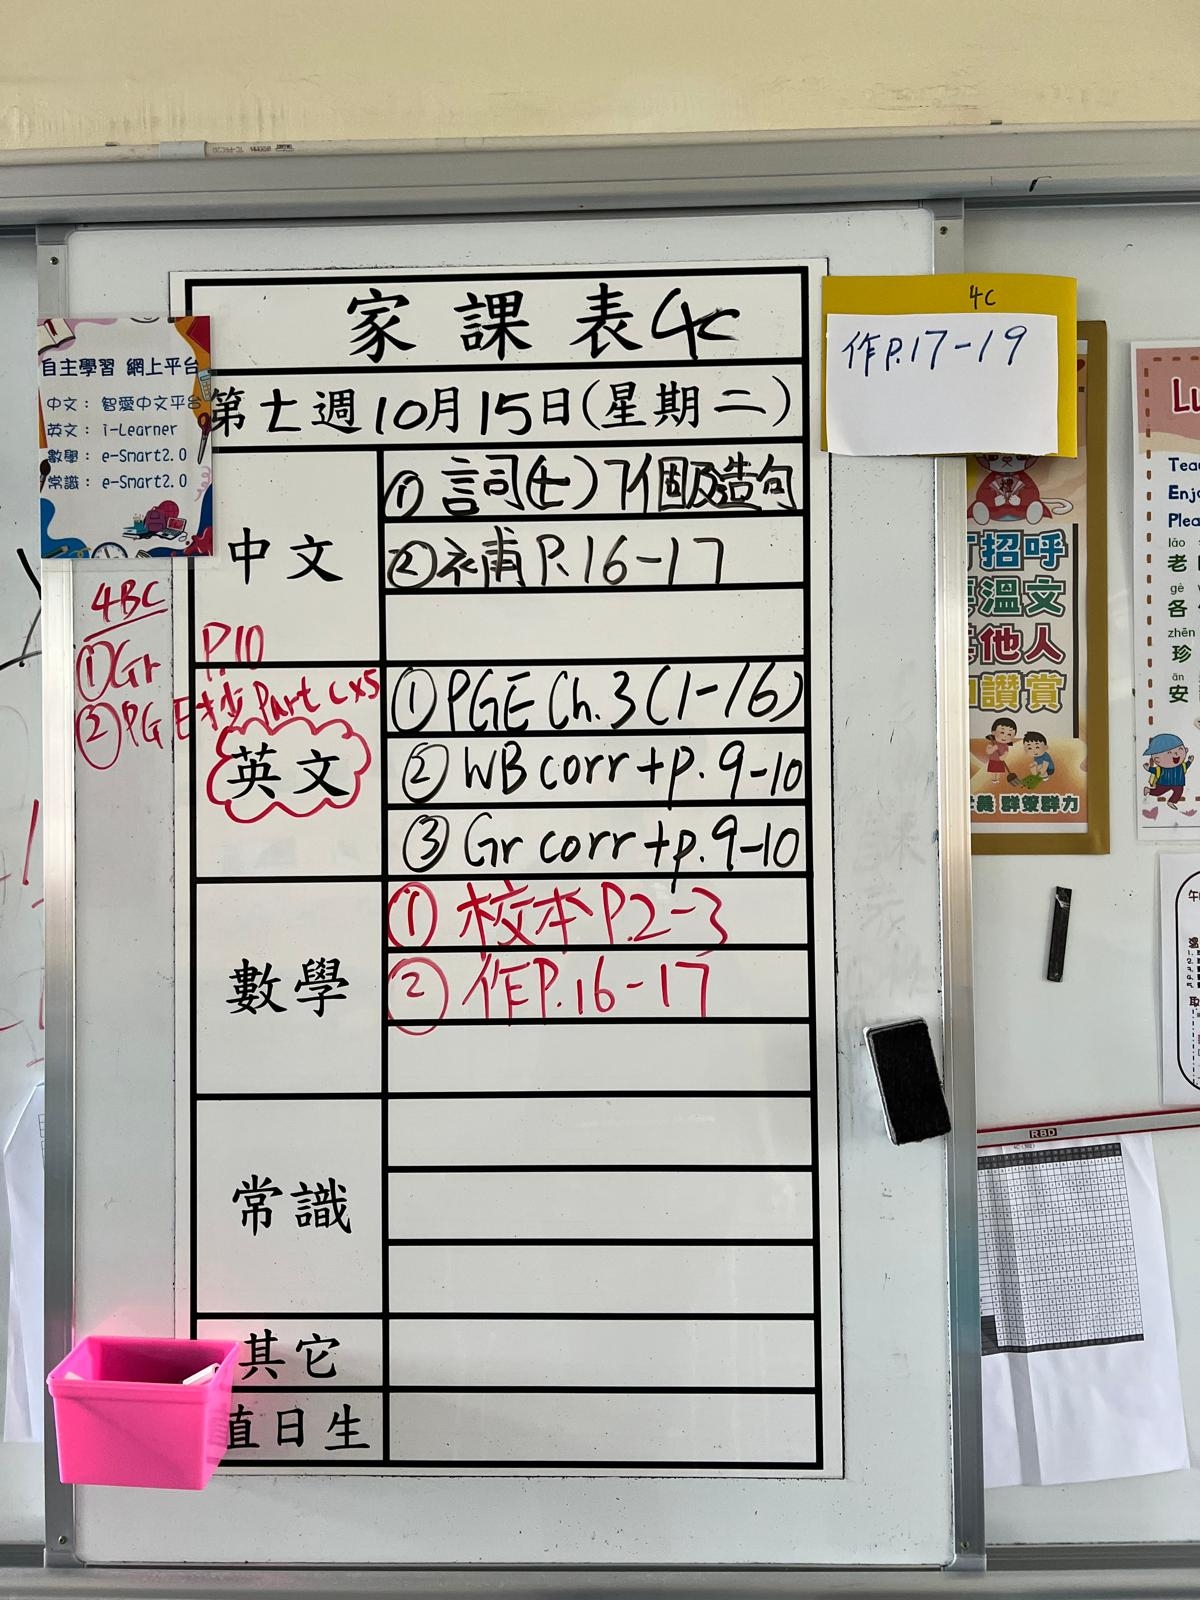 家課表 4C
第七週10月15日(星期二)
中文
① 詞(七)7個及造句
② 補 P.16-17
英文
① PGE Ch.3(1-16)
② WB corr + p. 9-10
③ Gr corr + p. 9-10
數學
① 校本 P.2-3
② 作 P.16-17
常識
其它
值日生
自主學習 網上平台
中文： 智愛中文平台
英文： i-Learner
數學： e-Smart2.0
常識： e-Smart2.0
4BC
① Gr
② PGE抄 Part C x5
P.10
4C
作P.17-19
打招呼
溫文
其他人
讚賞
群策群力
Lu
Tea
Enjo
Plea
lǎo
老
gè
各
zhēn
珍
ān
安
RBD